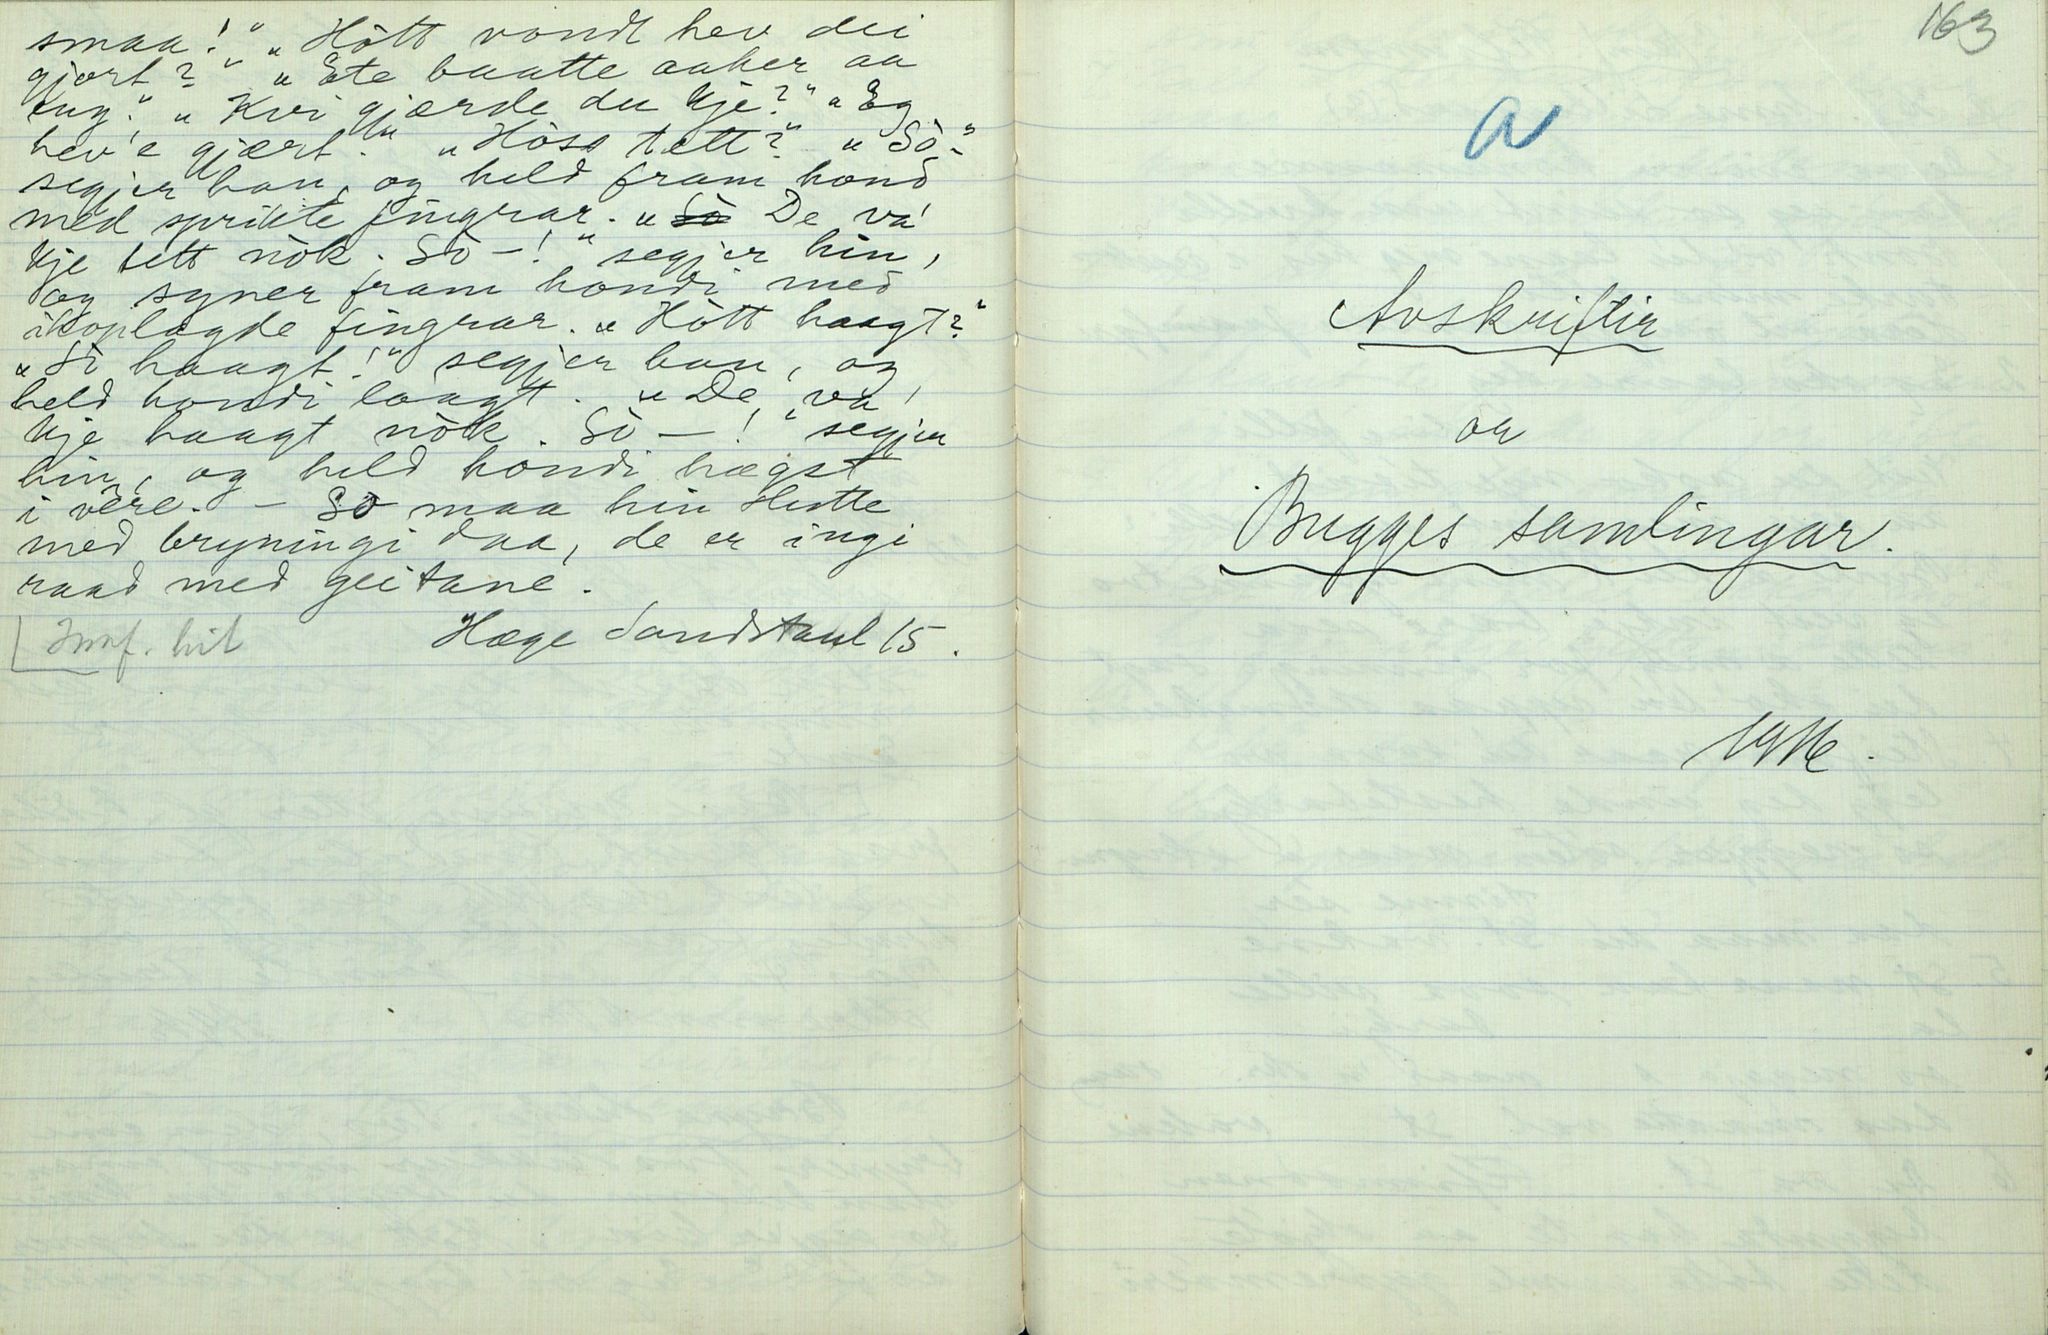 smaa!" "Hòtt vondt hev dei
gjort?" "Ete baatte aaker aa
eng." "Kvi gjærde du kje?" "Eg
hev'e gjært." "Hòss tett?" "Sò-"
segjer han, og held fram hond
med sprikte fingrar. "Sò De va'
kje tett nòk. Sò -!" segjer hin,
og syner fram hondi med
ihoplagde fingrar. "Hòtt haagt?"
"Sò haagt!" segjer han, og
held hondi laagt. "De va'
kje haagt nòk. Sò -!" segjer
hin, og held hondi hægst
i vêre. - Sò maa hin slutte
med bryningi daa, de er ingi
raad med geitane.
Hæge Sandstaul 15.
Innf. hit
163
a
Avskriftir
or
Bugges samlingar.